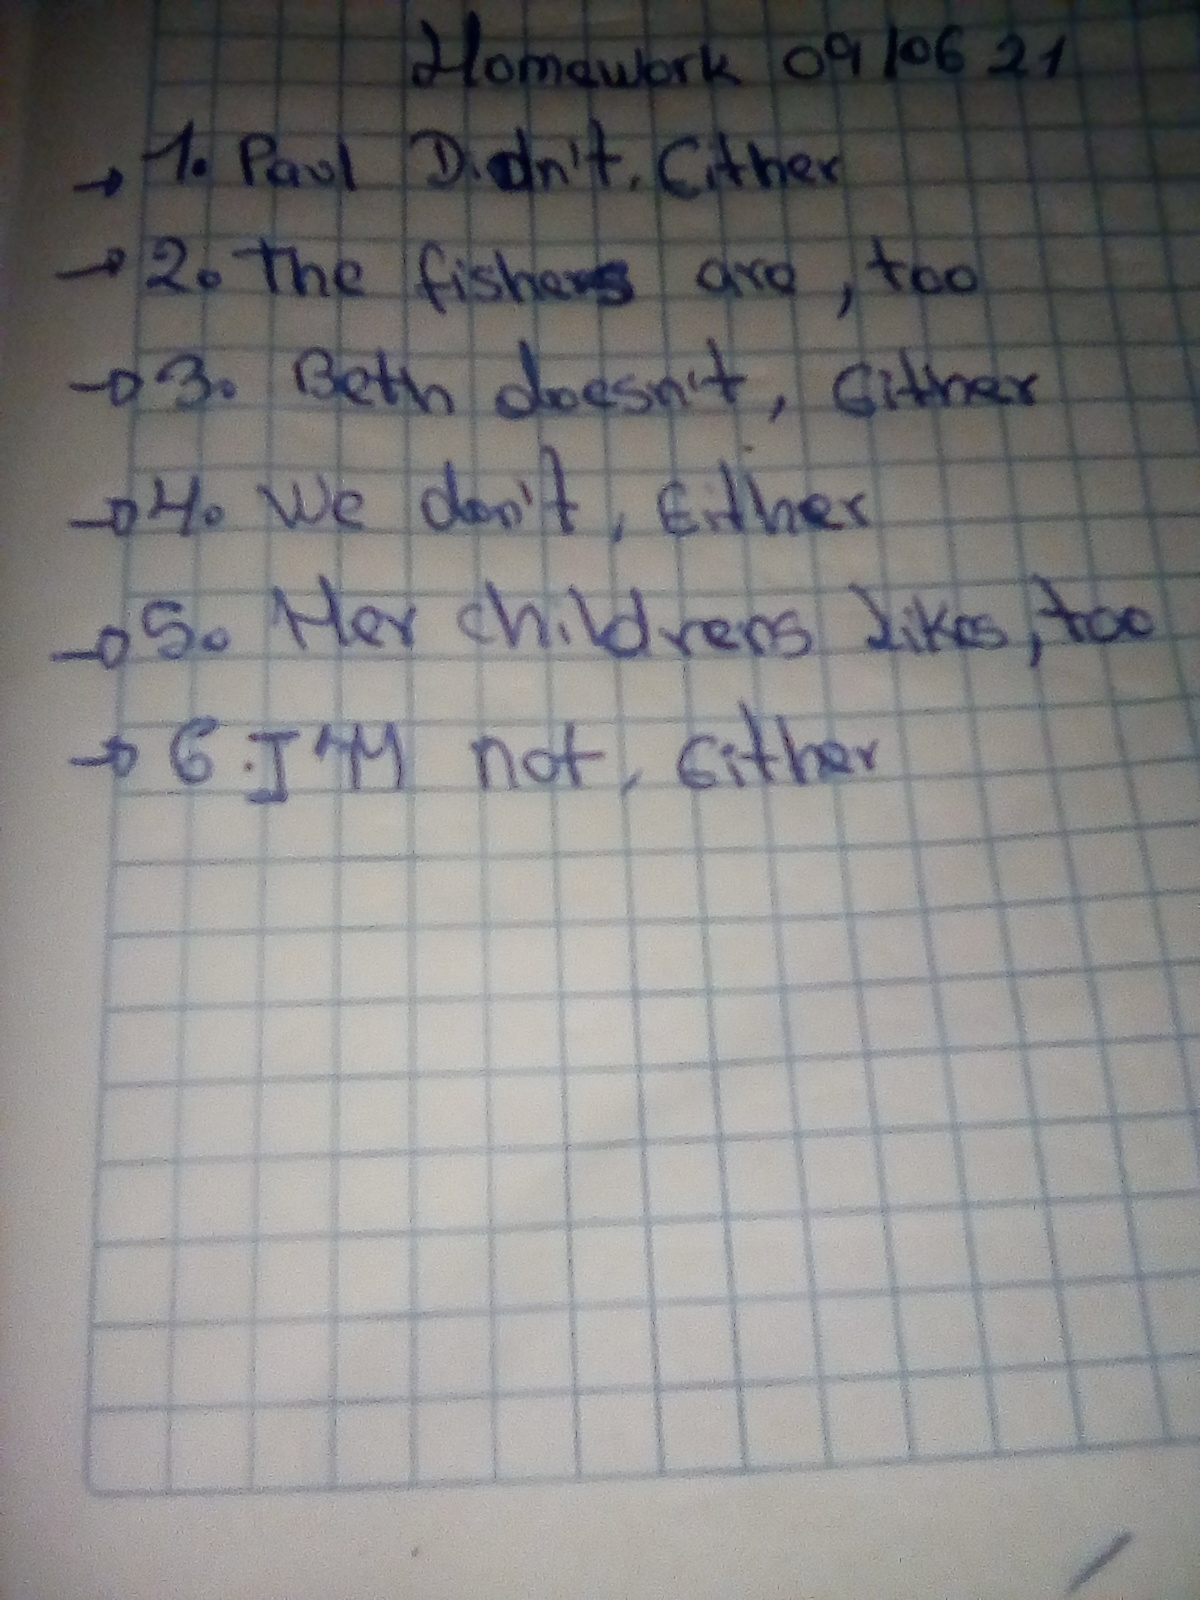 Homework 09/06 21
→ 1. Paul Didn't, Either
→ 2. The fishers are, too
→ 3. Beth doesn't, Either
→ 4. We don't, Either
→ 5. Her childrens likes, too
→ 6. I'M not, Either